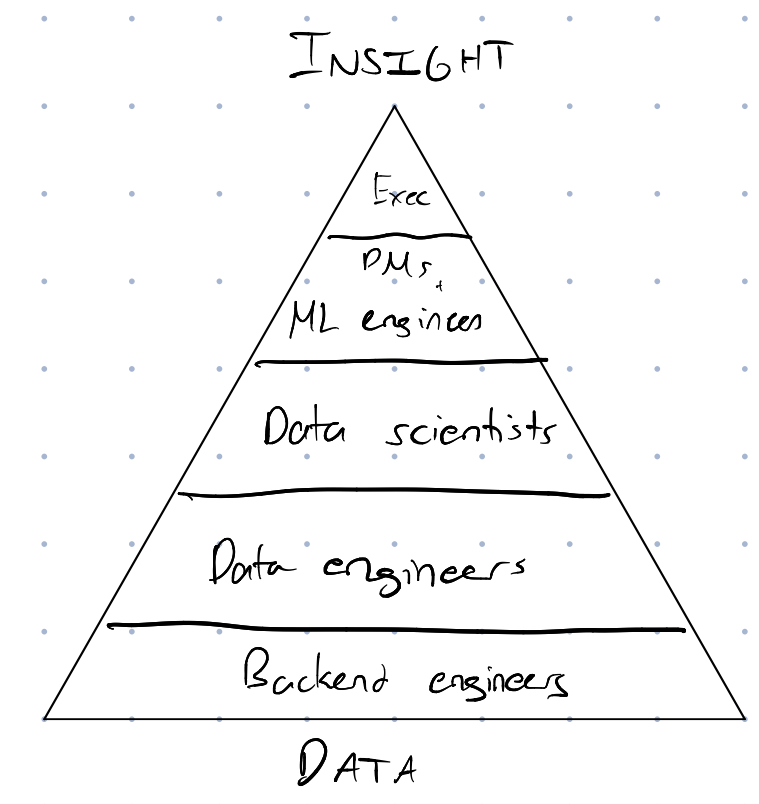 INSIGHT
Exec
PMs +
ML engineers
Data scientists
Data engineers
Backend engineers
DATA